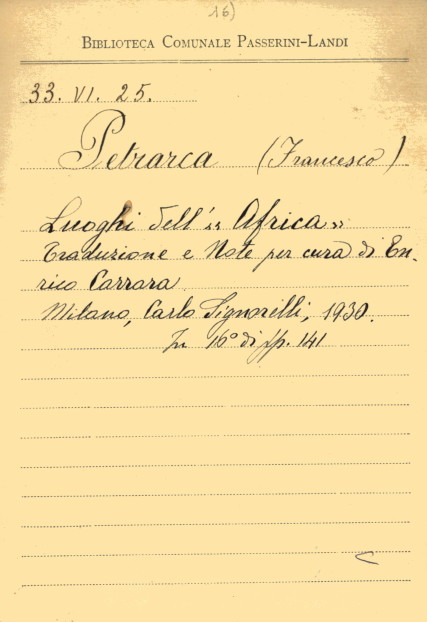 16)
BIBLIOTECA COMUNALE PASSERINI-LANDI
33. VI. 25.
Petrarca (Francesco)
Luoghi dell'" Africa"
Traduzione e Note per cura di En-
rico Carrara
Milano, Carlo Signorelli, 1930.
In 16° di pp. 141